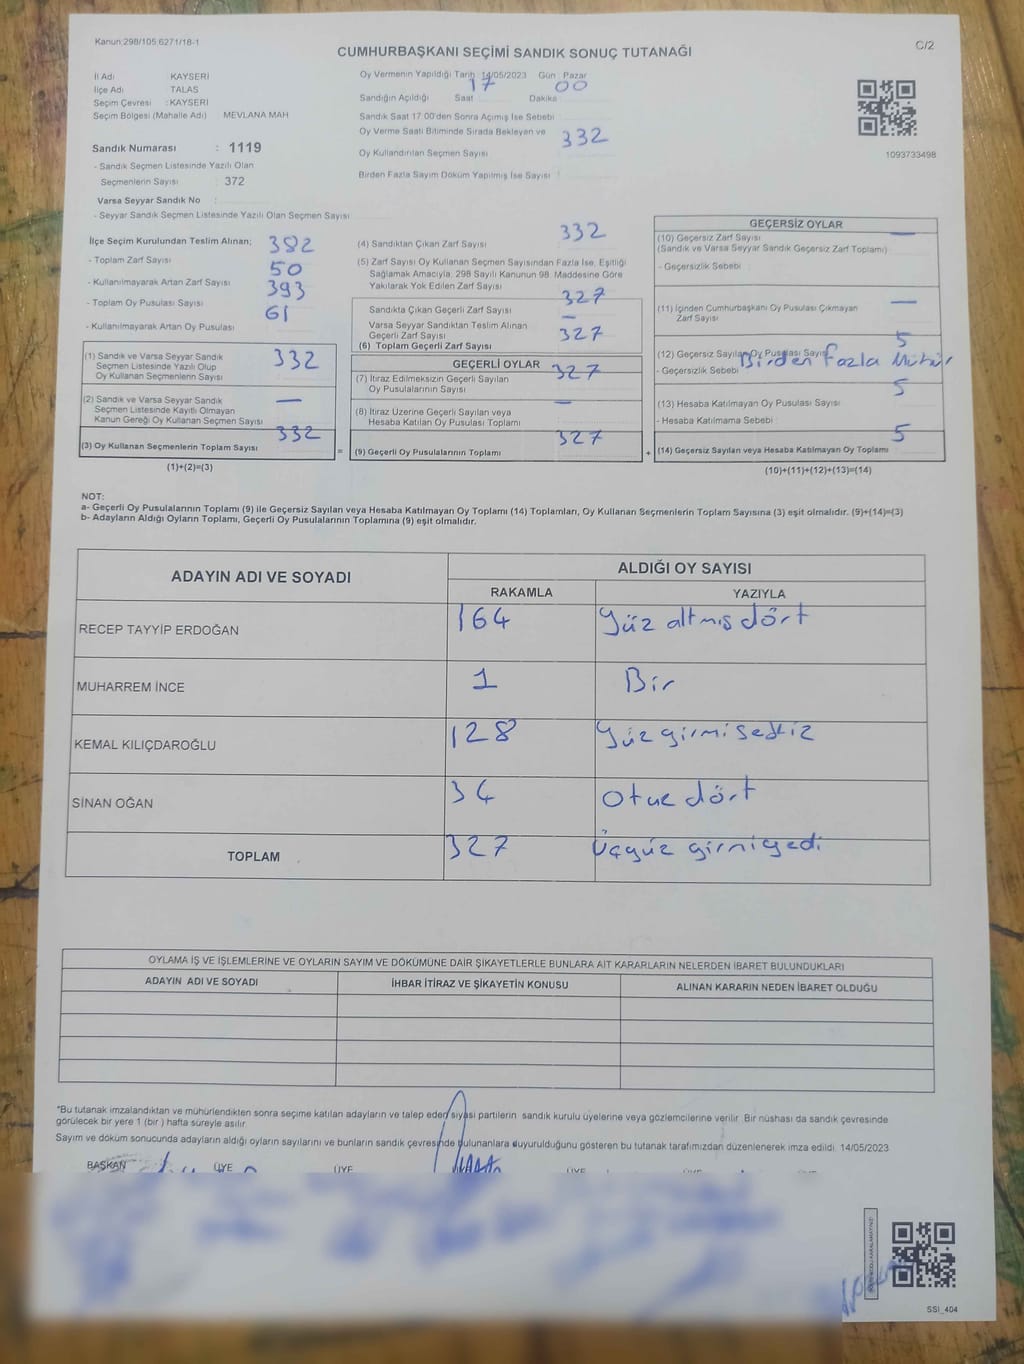 Kanun:298/105,6271/18-1
C/2
CUMHURBAŞKANI SEÇİMİ SANDIK SONUÇ TUTANAĞI
İl Adı KAYSERİ
İlçe Adı TALAS
Seçim Çevresi : KAYSERİ
Seçim Bölgesi (Mahalle Adı) MEVLANA MAH
Sandık Numarası : 1119
- Sandık Seçmen Listesinde Yazılı Olan
Seçmenlerin Sayısı : 372
Varsa Seyyar Sandık No :
- Seyyar Sandık Seçmen Listesinde Yazılı Olan Seçmen Sayısı
Oy Vermenin Yapıldığı Tarih 14/05/2023 Gün : Pazar
Sandığın Açıldığı Saat 17 Dakika 00
Sandık Saat 17.00'den Sonra Açılmış İse Sebebi :
Oy Verme Saati Bitiminde Sırada Bekleyen ve
Oy Kullandırılan Seçmen Sayısı 332
Birden Fazla Sayım Döküm Yapılmış İse Sayısı :
1093733498
İlçe Seçim Kurulundan Teslim Alınan;
- Toplam Zarf Sayısı 382
- Kullanılmayarak Artan Zarf Sayısı 50
- Toplam Oy Pusulası Sayısı 393
- Kullanılmayarak Artan Oy Pusulası 61
(1) Sandık ve Varsa Seyyar Sandık
Seçmen Listesinde Yazılı Olup
Oy Kullanan Seçmenlerin Sayısı 332
(2) Sandık ve Varsa Seyyar Sandık
Seçmen Listesinde Kayıtlı Olmayan
Kanun Gereği Oy Kullanan Seçmen Sayısı —
(3) Oy Kullanan Seçmenlerin Toplam Sayısı 332
(1)+(2)=(3)
(4) Sandıktan Çıkan Zarf Sayısı 332
(5) Zarf Sayısı Oy Kullanan Seçmen Sayısından Fazla İse, Eşitliği
Sağlamak Amacıyla, 298 Sayılı Kanunun 98. Maddesine Göre
Yakılarak Yok Edilen Zarf Sayısı
Sandıkta Çıkan Geçerli Zarf Sayısı 327
Varsa Seyyar Sandıktan Teslim Alınan
Geçerli Zarf Sayısı —
(6) Toplam Geçerli Zarf Sayısı 327
GEÇERLİ OYLAR
(7) İtiraz Edilmeksizin Geçerli Sayılan
Oy Pusulalarının Sayısı 327
(8) İtiraz Üzerine Geçerli Sayılan veya
Hesaba Katılan Oy Pusulası Toplamı —
= (9) Geçerli Oy Pusulalarının Toplamı 327
GEÇERSİZ OYLAR
(10) Geçersiz Zarf Sayısı —
(Sandık ve Varsa Seyyar Sandık Geçersiz Zarf Toplamı)
- Geçersizlik Sebebi
(11) İçinden Cumhurbaşkanı Oy Pusulası Çıkmayan
Zarf Sayısı —
(12) Geçersiz Sayılan Oy Pusulası Sayısı 5
- Geçersizlik Sebebi Birden fazla Mühür
(13) Hesaba Katılmayan Oy Pusulası Sayısı 5
- Hesaba Katılmama Sebebi
+ (14) Geçersiz Sayılan veya Hesaba Katılmayan Oy Toplamı 5
(10)+(11)+(12)+(13)=(14)
NOT:
a- Geçerli Oy Pusulalarının Toplamı (9) ile Geçersiz Sayılan veya Hesaba Katılmayan Oy Toplamı (14) Toplamları, Oy Kullanan Seçmenlerin Toplam Sayısına (3) eşit olmalıdır. (9)+(14)=(3)
b- Adayların Aldığı Oyların Toplamı, Geçerli Oy Pusulalarının Toplamına (9) eşit olmalıdır.
ADAYIN ADI VE SOYADI ALDIĞI OY SAYISI
RAKAMLA YAZIYLA
RECEP TAYYİP ERDOĞAN 164 Yüz altmış dört
MUHARREM İNCE 1 Bir
KEMAL KILIÇDAROĞLU 128 Yüz yirmi sekiz
SİNAN OĞAN 34 Otuz dört
TOPLAM 327 Üçyüz yirmiyedi
OYLAMA İŞ VE İŞLEMLERİNE VE OYLARIN SAYIM VE DÖKÜMÜNE DAİR ŞİKAYETLERLE BUNLARA AİT KARARLARIN NELERDEN İBARET BULUNDUKLARI
ADAYIN ADI VE SOYADI İHBAR İTİRAZ VE ŞİKAYETİN KONUSU ALINAN KARARIN NEDEN İBARET OLDUĞU
*Bu tutanak imzalandıktan ve mühürlendikten sonra seçime katılan adayların ve talep eden siyasi partilerin sandık kurulu üyelerine veya gözlemcilerine verilir. Bir nüshası da sandık çevresinde
görülecek bir yere 1 (bir) hafta süreyle asılır.
Sayım ve döküm sonucunda adayların aldığı oyların sayılarını ve bunların sandık çevresinde bulunanlara duyurulduğunu gösteren bu tutanak tarafımızdan düzenlenerek imza edildi. 14/05/2023
BAŞKAN ÜYE ÜYE ÜYE ÜYE ÜYE
SSI_404